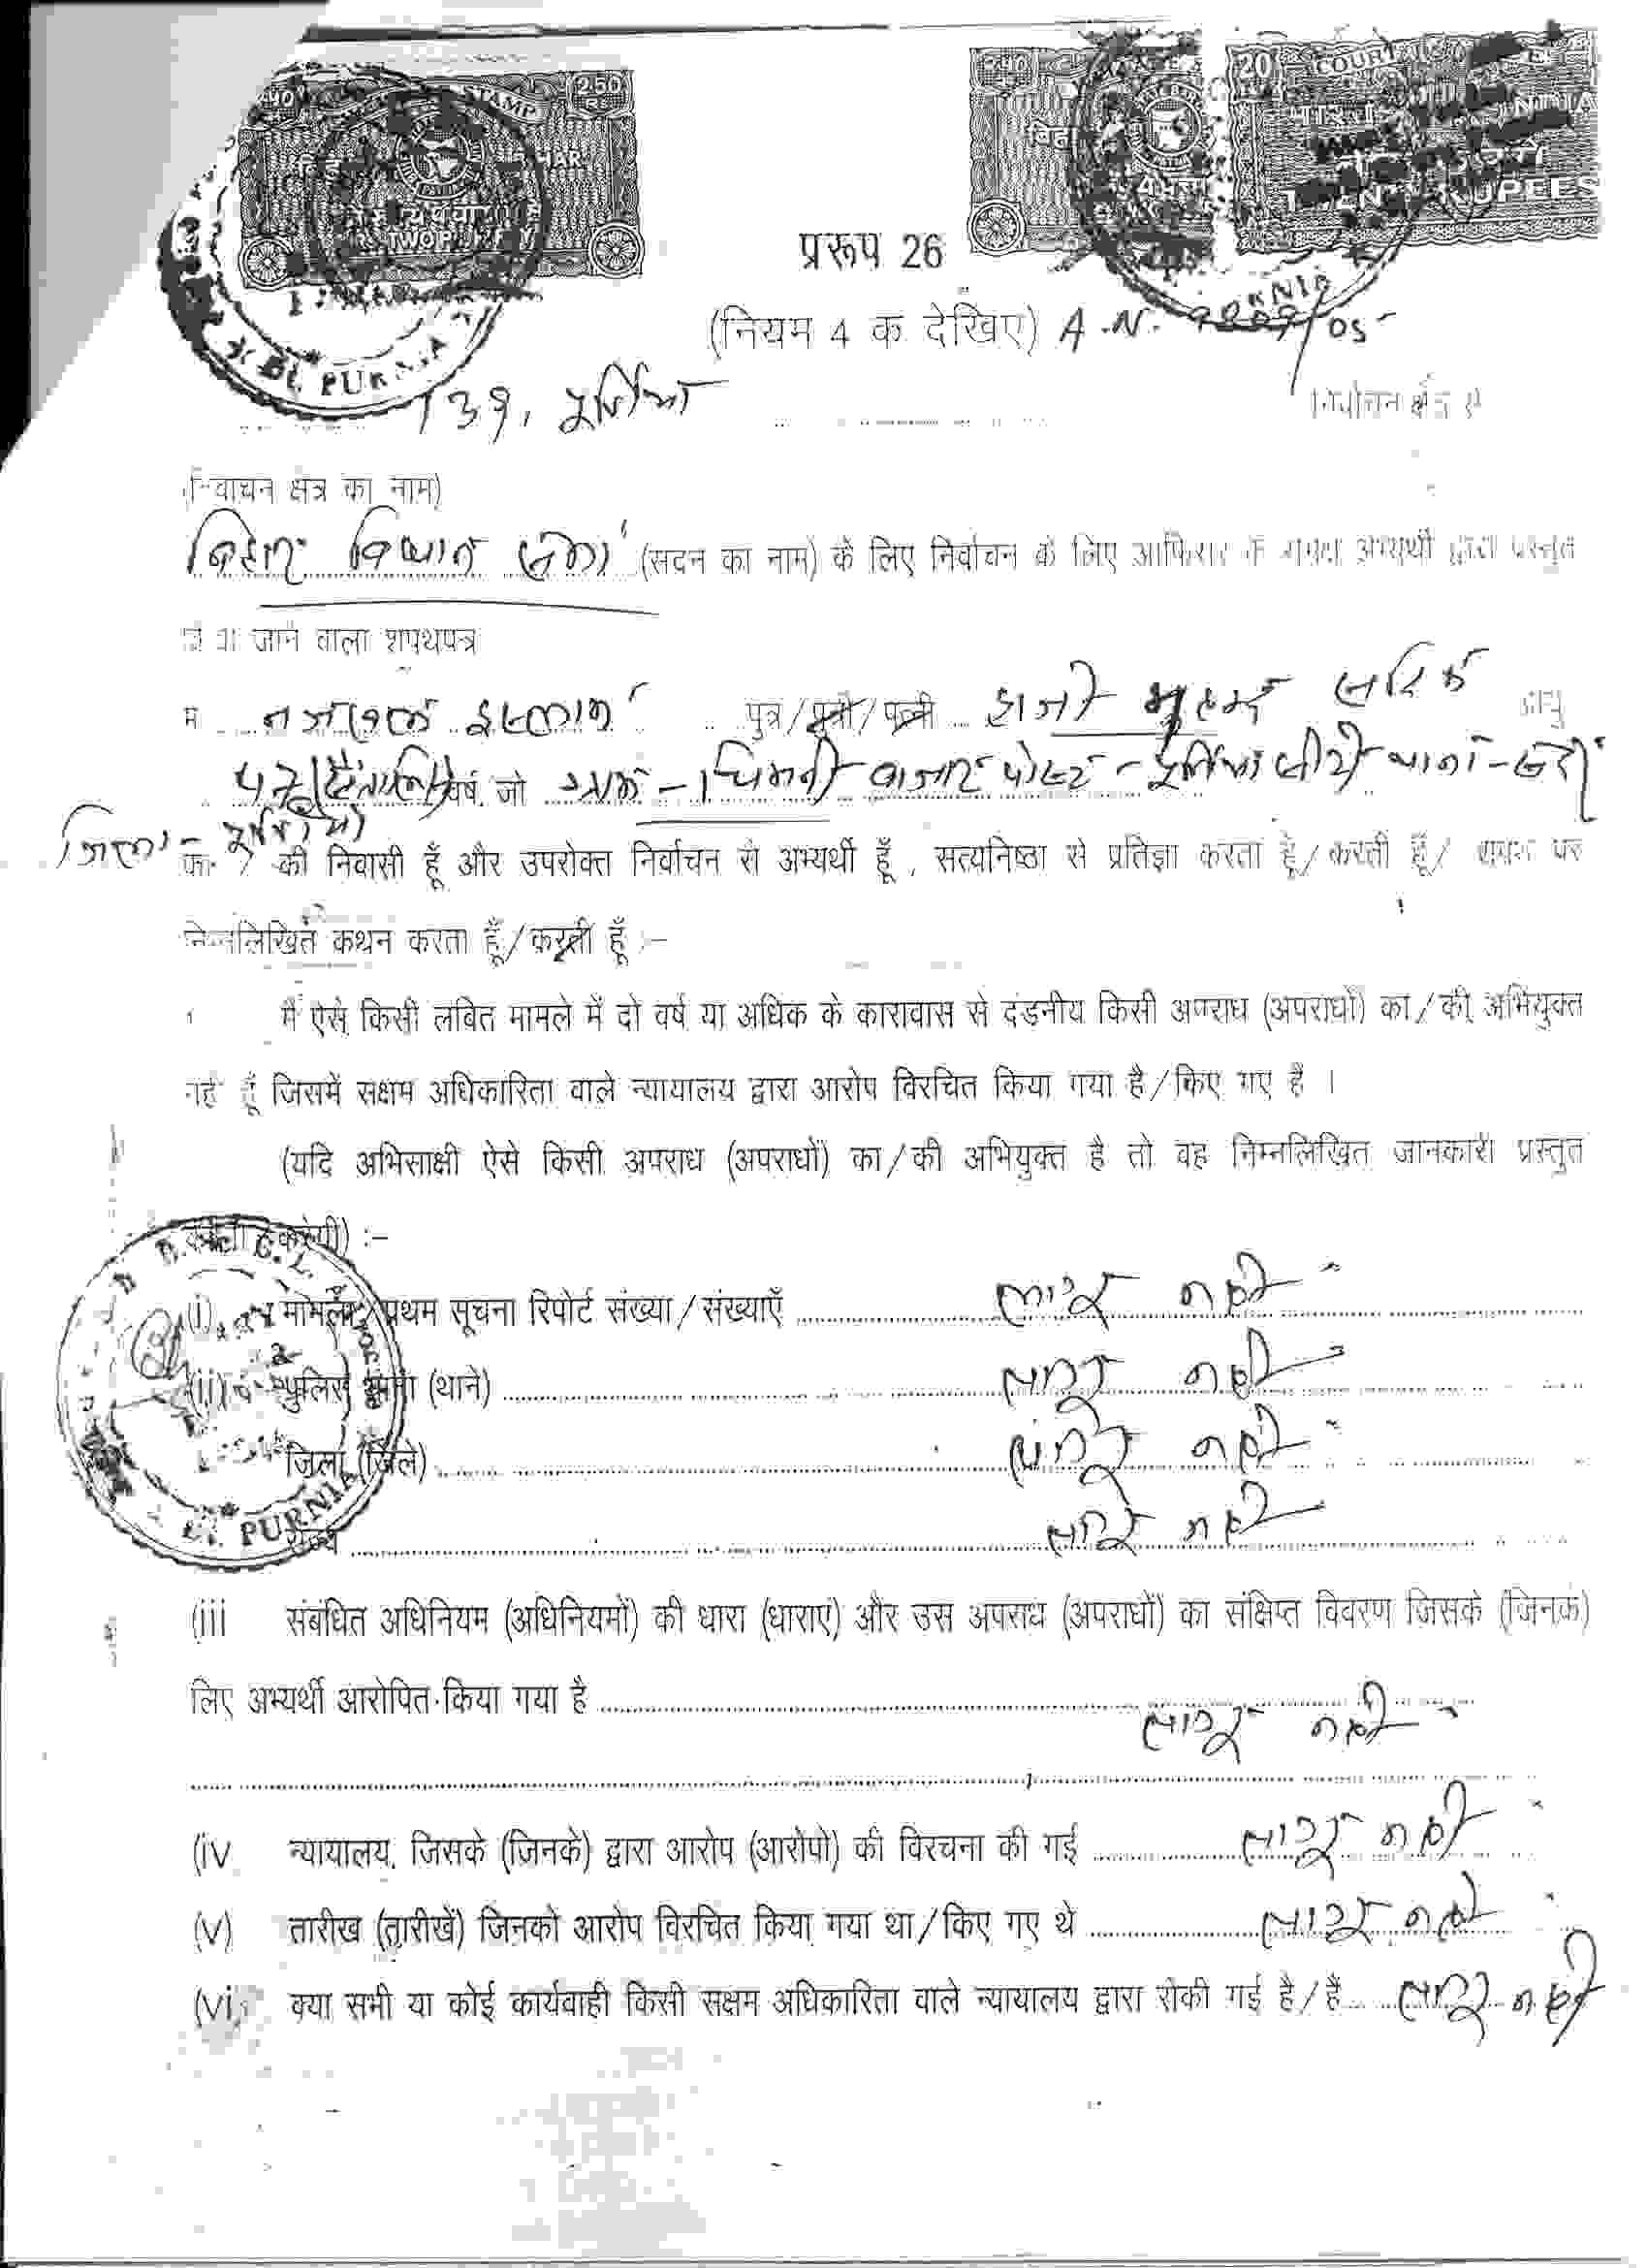 STAMP 2.50
COURT
20
INDIA
TWENTY RUPEES
प्ररूप 26
(नियम 4 क देखिए) A.N. /05
PURNIA
139, पूर्णिया निर्वाचन क्षेत्र से
(निर्वाचन क्षेत्र का नाम)
बिहार विधान सभा (सदन का नाम) के लिए निर्वाचन के लिए आफिसर के समक्ष अभ्यर्थी द्वारा प्रस्तुत
किया जाने वाला शपथपत्र
मैं इस्लाम पुत्र/पुत्री/पत्नी हाजी आयु
वर्ष, जो बाजार पोस्ट - पूर्णिया सीटी थाना - सदर
जिला - पूर्णिया
का / की निवासी हूँ और उपरोक्त निर्वाचन से अभ्यर्थी हूँ, सत्यनिष्ठा से प्रतिज्ञा करता हूँ/करती हूँ/ शपथ पर
निम्नलिखित कथन करता हूँ/करती हूँ :-
1 मैं ऐसे किसी लंबित मामले में दो वर्ष या अधिक के कारावास से दंडनीय किसी अपराध (अपराधों) का/की अभियुक्त
नहीं हूँ जिसमें सक्षम अधिकारिता वाले न्यायालय द्वारा आरोप विरचित किया गया है/किए गए हैं ।
(यदि अभिसाक्षी ऐसे किसी अपराध (अपराधों) का/की अभियुक्त है तो वह निम्नलिखित जानकारी प्रस्तुत
करेगी) :-
(i) मामला/प्रथम सूचना रिपोर्ट संख्या/संख्याएँ लागू नहीं
(ii) पुलिस थाना (थाने) लागू नहीं
जिला (जिले) लागू नहीं
राज्य लागू नहीं
PURNIA
(iii संबंधित अधिनियम (अधिनियमों) की धारा (धाराएं) और उस अपराध (अपराधों) का संक्षिप्त विवरण जिसके (जिनके)
लिए अभ्यर्थी आरोपित किया गया है लागू नहीं
(iv न्यायालय, जिसके (जिनके) द्वारा आरोप (आरोपो) की विरचना की गई लागू नहीं
(v) तारीख (तारीखें) जिनको आरोप विरचित किया गया था/किए गए थे लागू नहीं
(vi) क्या सभी या कोई कार्यवाही किसी सक्षम अधिकारिता वाले न्यायालय द्वारा रोकी गई है/हैं लागू नहीं